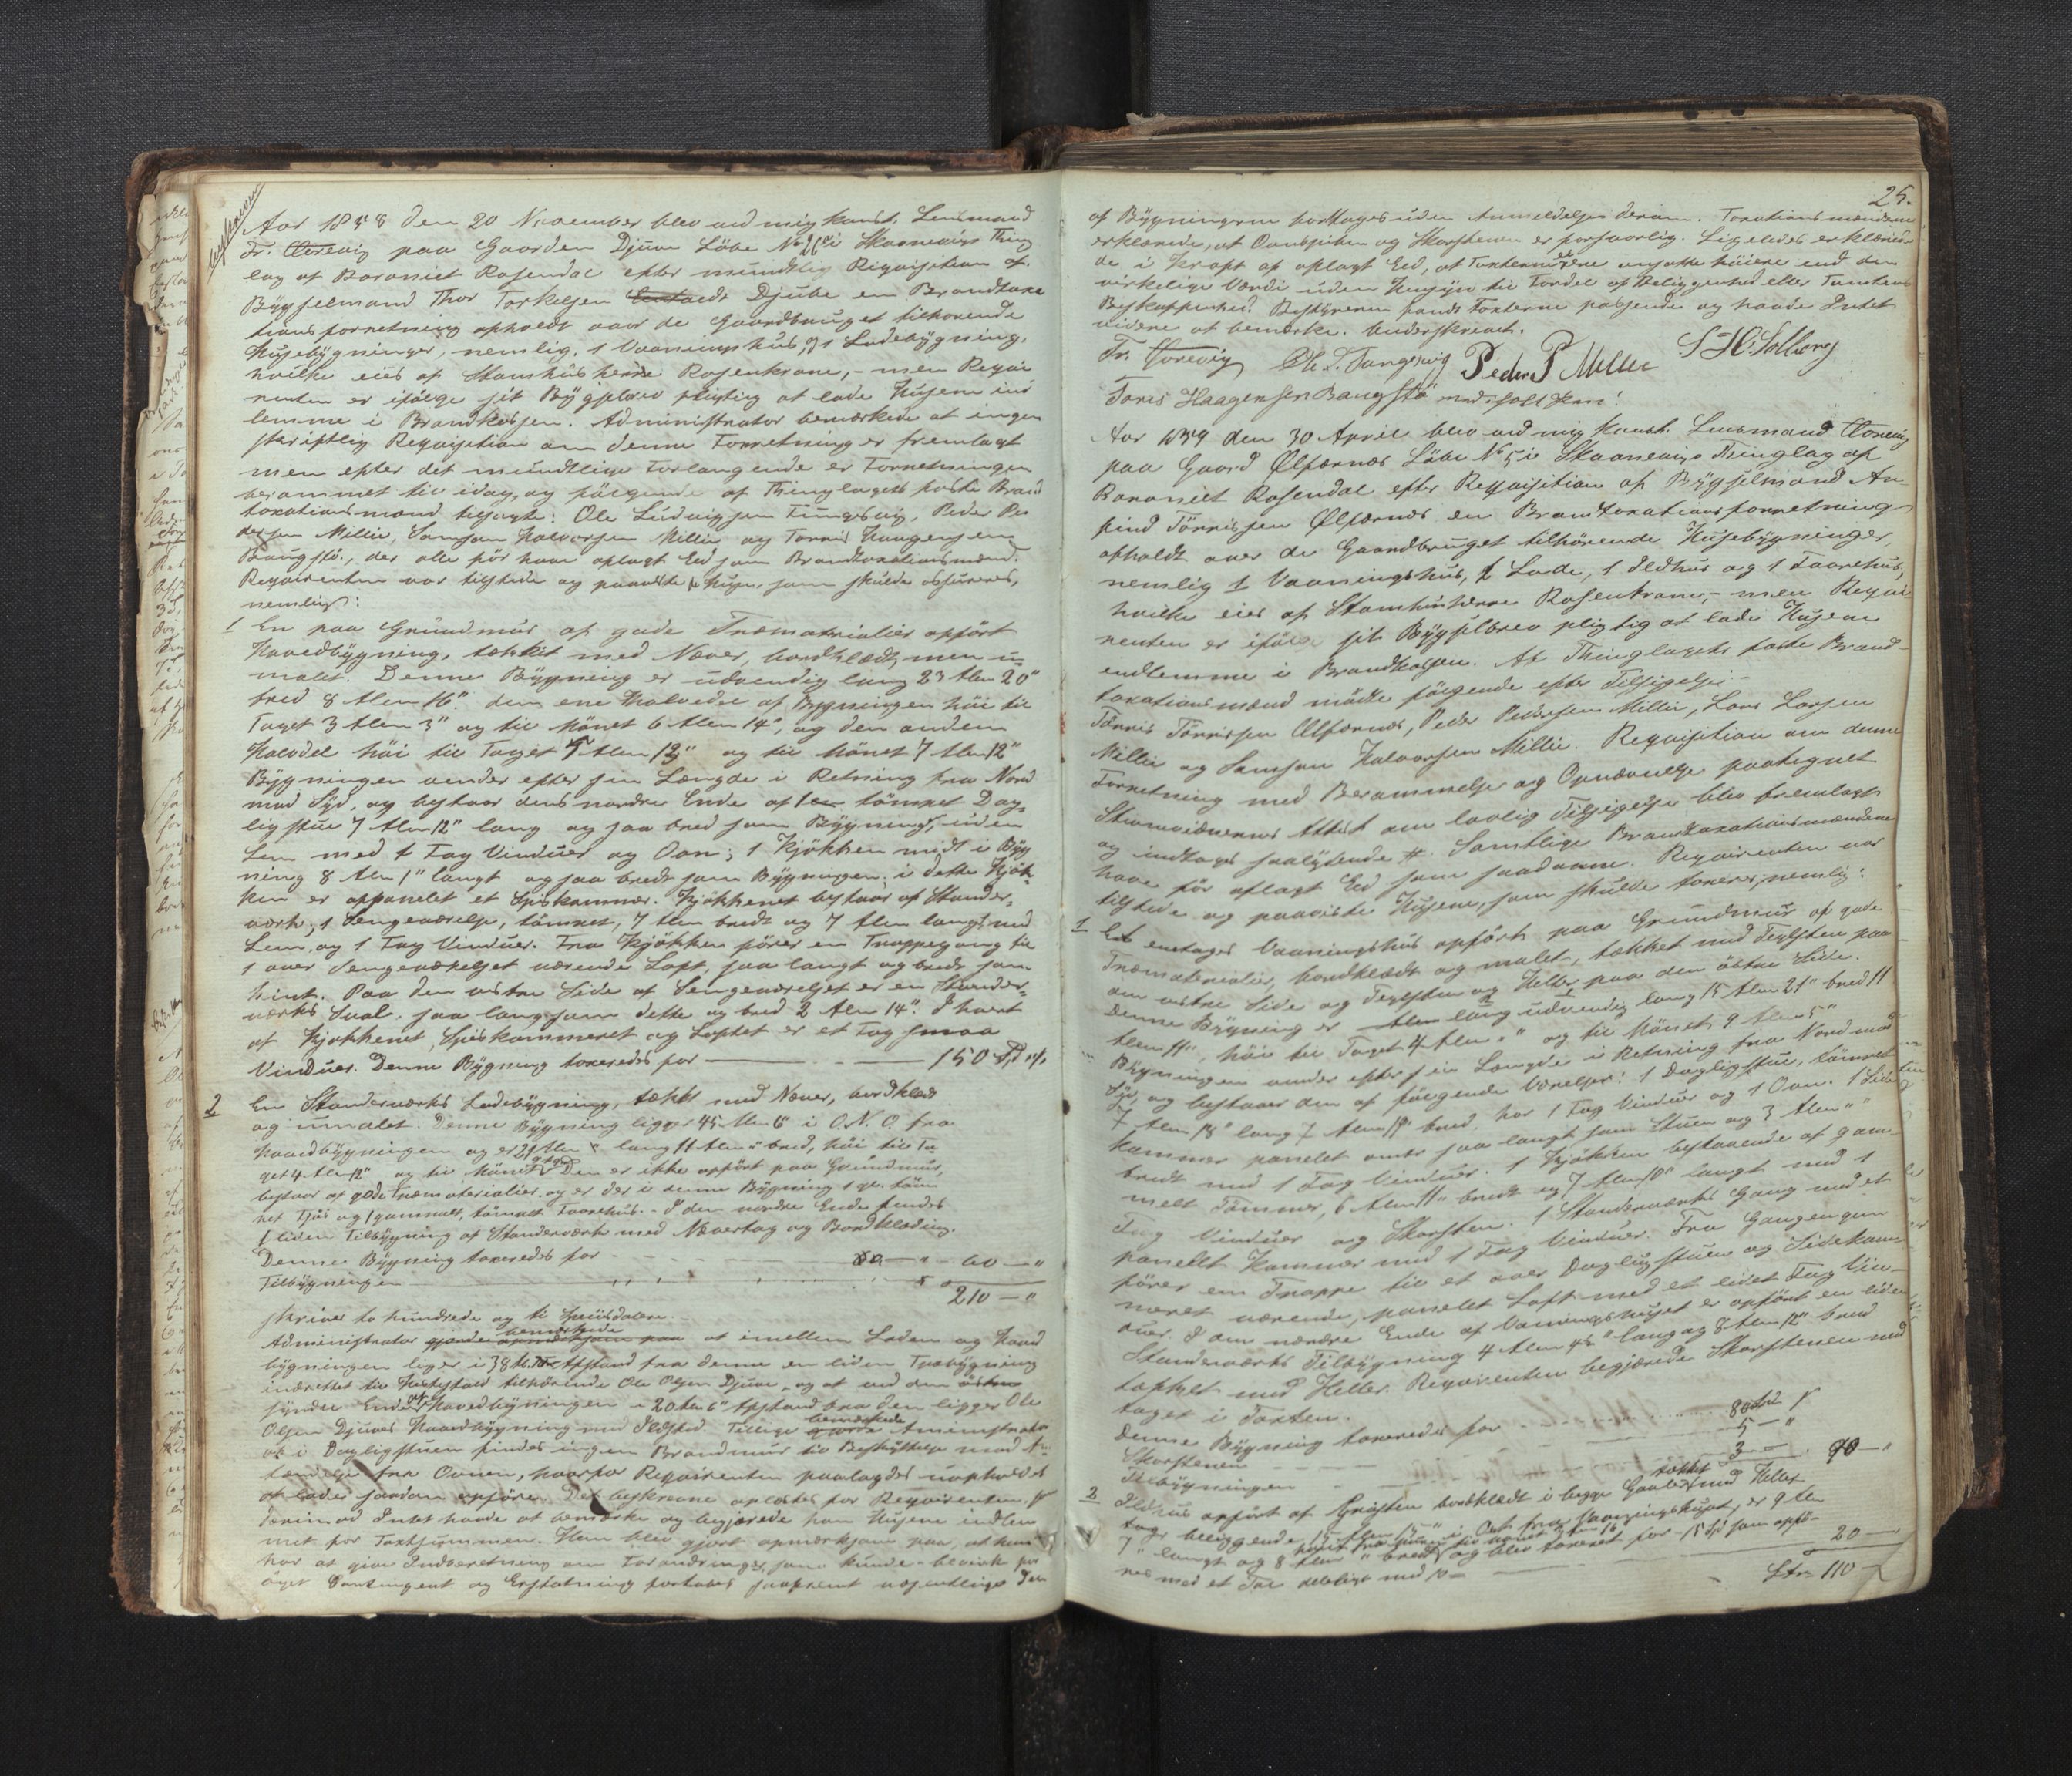 Aar 1858 den 20 November blev ved mig konst. Lensmand
Fr. Torevig paa Gaarden Djuve Löbe No 26 i Skaanevigs Thing
lag af Baroniet Rosendal efter mundtlig Requisition af
Bygselmand Thor Torkelsen Djube en Brandtaxa
tionsforretning afholdt over de Gaardbruget tilhörende
Husebygninger, nemlig. 1 Vaaningshus, og 1 Ladebygning,
hvilke eies af Stamhusherre Rosenkrone, - men Requi
renten er ifölge sit Bygselbrev pligtig at lade Husene ind
lemme i Brandkassen. Administrator bemærkede at ingen
skriftlig Requisition om denne Forretning er fremlagt
men efter det mundtlige Forlangende er Forretningen
berammet til idag, og fölgende af Thinglagets faste Brand
taxationsmænd tilsagte: Ole Ludvigsen Fungsvig, Peder Pe
dersen Millie, Samson Halvorsen Millie og Tornes Haagensen
Baugstö, der alle för have aflagt Eed som Brandtaxationsmænd.
Requirenten var tilstede og paaviste Husene, som skulde assureres,
nemlig:
1 En paa Grundmur af gode Træmaterialier opfört
Hovedbygning, tækket med Næver, bordklædt, men u
malet. Denne Bygning er udvendig lang 23 Alen 20"
bred 8 Alen 16", den ene Halvdel af Bygningen höi til
Taget 3 Alen 3" og til Mönet 6 Alen 14", og den anden
Halvdel höi til Taget Alen 13" og til Mönet 7 Alen 12"
Bygningen vender efter sin Længde i Retning fra Nord
mod Syd, og bestaar dens nordre Ende af tömret Dag
ligstue 7 Alen 12" lang og saa bred som Bygningen, uden
Lem med 4 Fag Vinduer og Ovn; 1 Kjökken midt i Byg
ning 8 Alen 1" langt og saa bredt som Bygningen; i dette Kjök
ken er afpanelet et Spiskammer. Kjökkenet bestaar af Stander,
værk, 1 Sengeværelse, tömret, 7 Alen bredt og 7 Alen langt med
Lem, og 1 Fag Vinduer. Fra Kjökken förer en Trappegang til
1 over Sengeværelset værende Loft, saa langt og bredt som
hint. Paa den vestre Side af Sengeværelset er en Stander
værks Sval, saa lang som dette og bred 2 Alen 14". I hvert
af Kjökkenet, Spiskammeret og Loftet er et Fag smaa
Vinduer. Denne Bygning taxeredes for 150 Spd
2 En Standerværks Ladebygning, tækket med Næver, bordklædt
og umalet. Denne Bygning ligger 45 Alen 6" i O.N.O. fra
Hovedbygningen og er 21 Alen lang 11 Alen bred, höi til Ta
get 4 Alen 12" og til Mönet Den er ikke opfört paa Grundmur,
bestaar af gode Træmaterialier, og er der i denne Bygning 1 töm
ret Fjös og 1 gammelt, tömret Faarehus. - I den nordre Ende findes
1 liden Tilbygning af Standerværk med Nævertag og Bordklædning.
Denne Bygning taxeredes for 60 - "
Tilbygningen
210 - "
skriver to hundrede og ti Speciesdaler.
Administrator bemærkede at imellem Laden og Hoved
bygningen liger i 38 Afstand fra denne en liden Træbygning
indrettet til Hestestald tilhörende Ole Olsen Djuve, og at ved den
syndre Ende af Hovedbygningen i 20 Alen 6" Afstand fra den ligger Ole
Olsen Djuves Hovedbygning med Ildsted. Tillige bemærkede Administrator
at i Dagligstuen findes ingen Brandmur til Beskyttelse mod An
tændelse fra Ovnen, hvorfor Requirenten paalagdes uopholdet
at lade saadan opföre. Det beskrevne oplæstes for Requirenten
derimod Intet havde at bemærke og begjærede han Husene indlem
met for Taxtsummen. Han blev gjort opmærksom paa, at han
har at give Indberetning om Forandringer, som kunde bevirke for
öget Contingent og Erstatning fortabes saafremt væsentlige
25.
af Bygningerne foretages uden Anmeldelse derom. Taxationsmændene
erklærede, at Ovnspiben og Skorstenen er forsvarlig. Ligeledes erklære
de i Kraft af aflagt Eed, at Taxterne ei ere ansatte höiere end den
virkelige Værdi uden Hensyn til Fordel af Beliggenhed eller Tomtens
Beskaffenhed. Bestyreren fandt Taxterne passende og havde Intet
videre at bemærke. Underskrevet.
Fr. Torevig Ole L. Fungsvig Peder P Millie S H. Solberg
Tores Haagensen Baugstö med paaholt Pen!
Aar 1859 den 30 April blev ved mig konst. Lensmand Torevig
paa Gaard Ølfærnæs Löbe No 5 i Skaanevigs Thinglag af
Baroniet Rosendal efter Requisition af Bygselmand An
find Törrissen Ølfærnæs en Brandtaxationsforretning
afholdt over de Gaardbruget tilhörende Husebygninger,
nemlig 1 Vaaningshus, 1 Lade, 1 Ildhus og 1 Faarehus,
hvilke eies af Stamhusherre Rosenkrone, - men Requi
renten er ifölge sit Bygselbrev pligtig at lade Husene
indlemme i Brandkassen. Af Thinglagets faste Brand-
taxationsmænd mödte fölgende efter Tilsigelse: -
Törris Törrissen Ølfærnæs, Peder Pedersen Millie, Lars Larsen
Millie og Samson Halvorsen Millie. Requisition om denne
Forretning med Berammelse og Opnævnelse paategnet
Stevnevidnernes Attest om lovlig Tilsigelse blev fremlagt
og indtages saalydende #. Samtlige Brandtaxationsmændene
have för aflagt Eed som saadanne. Requirenten var
tilstede og paaviste Husene, som skulde taxeres, nemlig:
1 Et enetages Vaaningshus opfört paa Grundmur af gode
Træmaterialier, bordklædt og malet, tækket med Teglsten paa
den vestre Side og Teglsten og Heller paa den östre Side.
Denne Bygning er udvendig lang 15 Alen 21" bred 11
Alen 11", höi til Taget 4 Alen " og til Mönet 9 Alen 5"
Bygningen vender efter sin Længde i Retning fra Nord mod
Syd, og bestaaer den af fölgende Værelser: 1 Dagligstue, tömret
7 Alen 18" lang 7 Alen 18" bred, har 1 Fag Vinduer og 1 Ovn. 1 Side
kammer panelet saa langt som Stuen og 3 Alen "
bredt med 1 Fag Vinduer. 1 Kjökken bestaaende af gam
melt Tömmer, 6 Alen 11" bredt og 7 Alen 10" langt med 1
Fag Vinduer og Skorsten. 1 Standerværks Gang med et
panelet Kammer med 1 Fag Vinduer. Fra Gangen
förer en Trappe til et over Dagligstuen og Sidekam
meret værende, panelet Loft med et lidet Fag Vin
duer. I den nordre Ende af Vaaningshuset er opfört en liden
Standerværks Tilbygning 4 Alen lang og 8 Alen 12" bred
taktet med Heller. Requirenten begjærede Skorstenen med
taget i Taxten.
Denne Bygning taxeredes for 80
Skorstenen 5 - "
Tilbygningen 3 90 - "
2 Ildhus opfört af Graasten bordklædt i begge Gavler, tækket med Heller
beliggende i Öst fra Vaaningshuset, er 9 Alen
7" langt og 8 Alen " bredt og blev taxeret for 15 Spd som opfö-
res med et 20
Ltr. 110